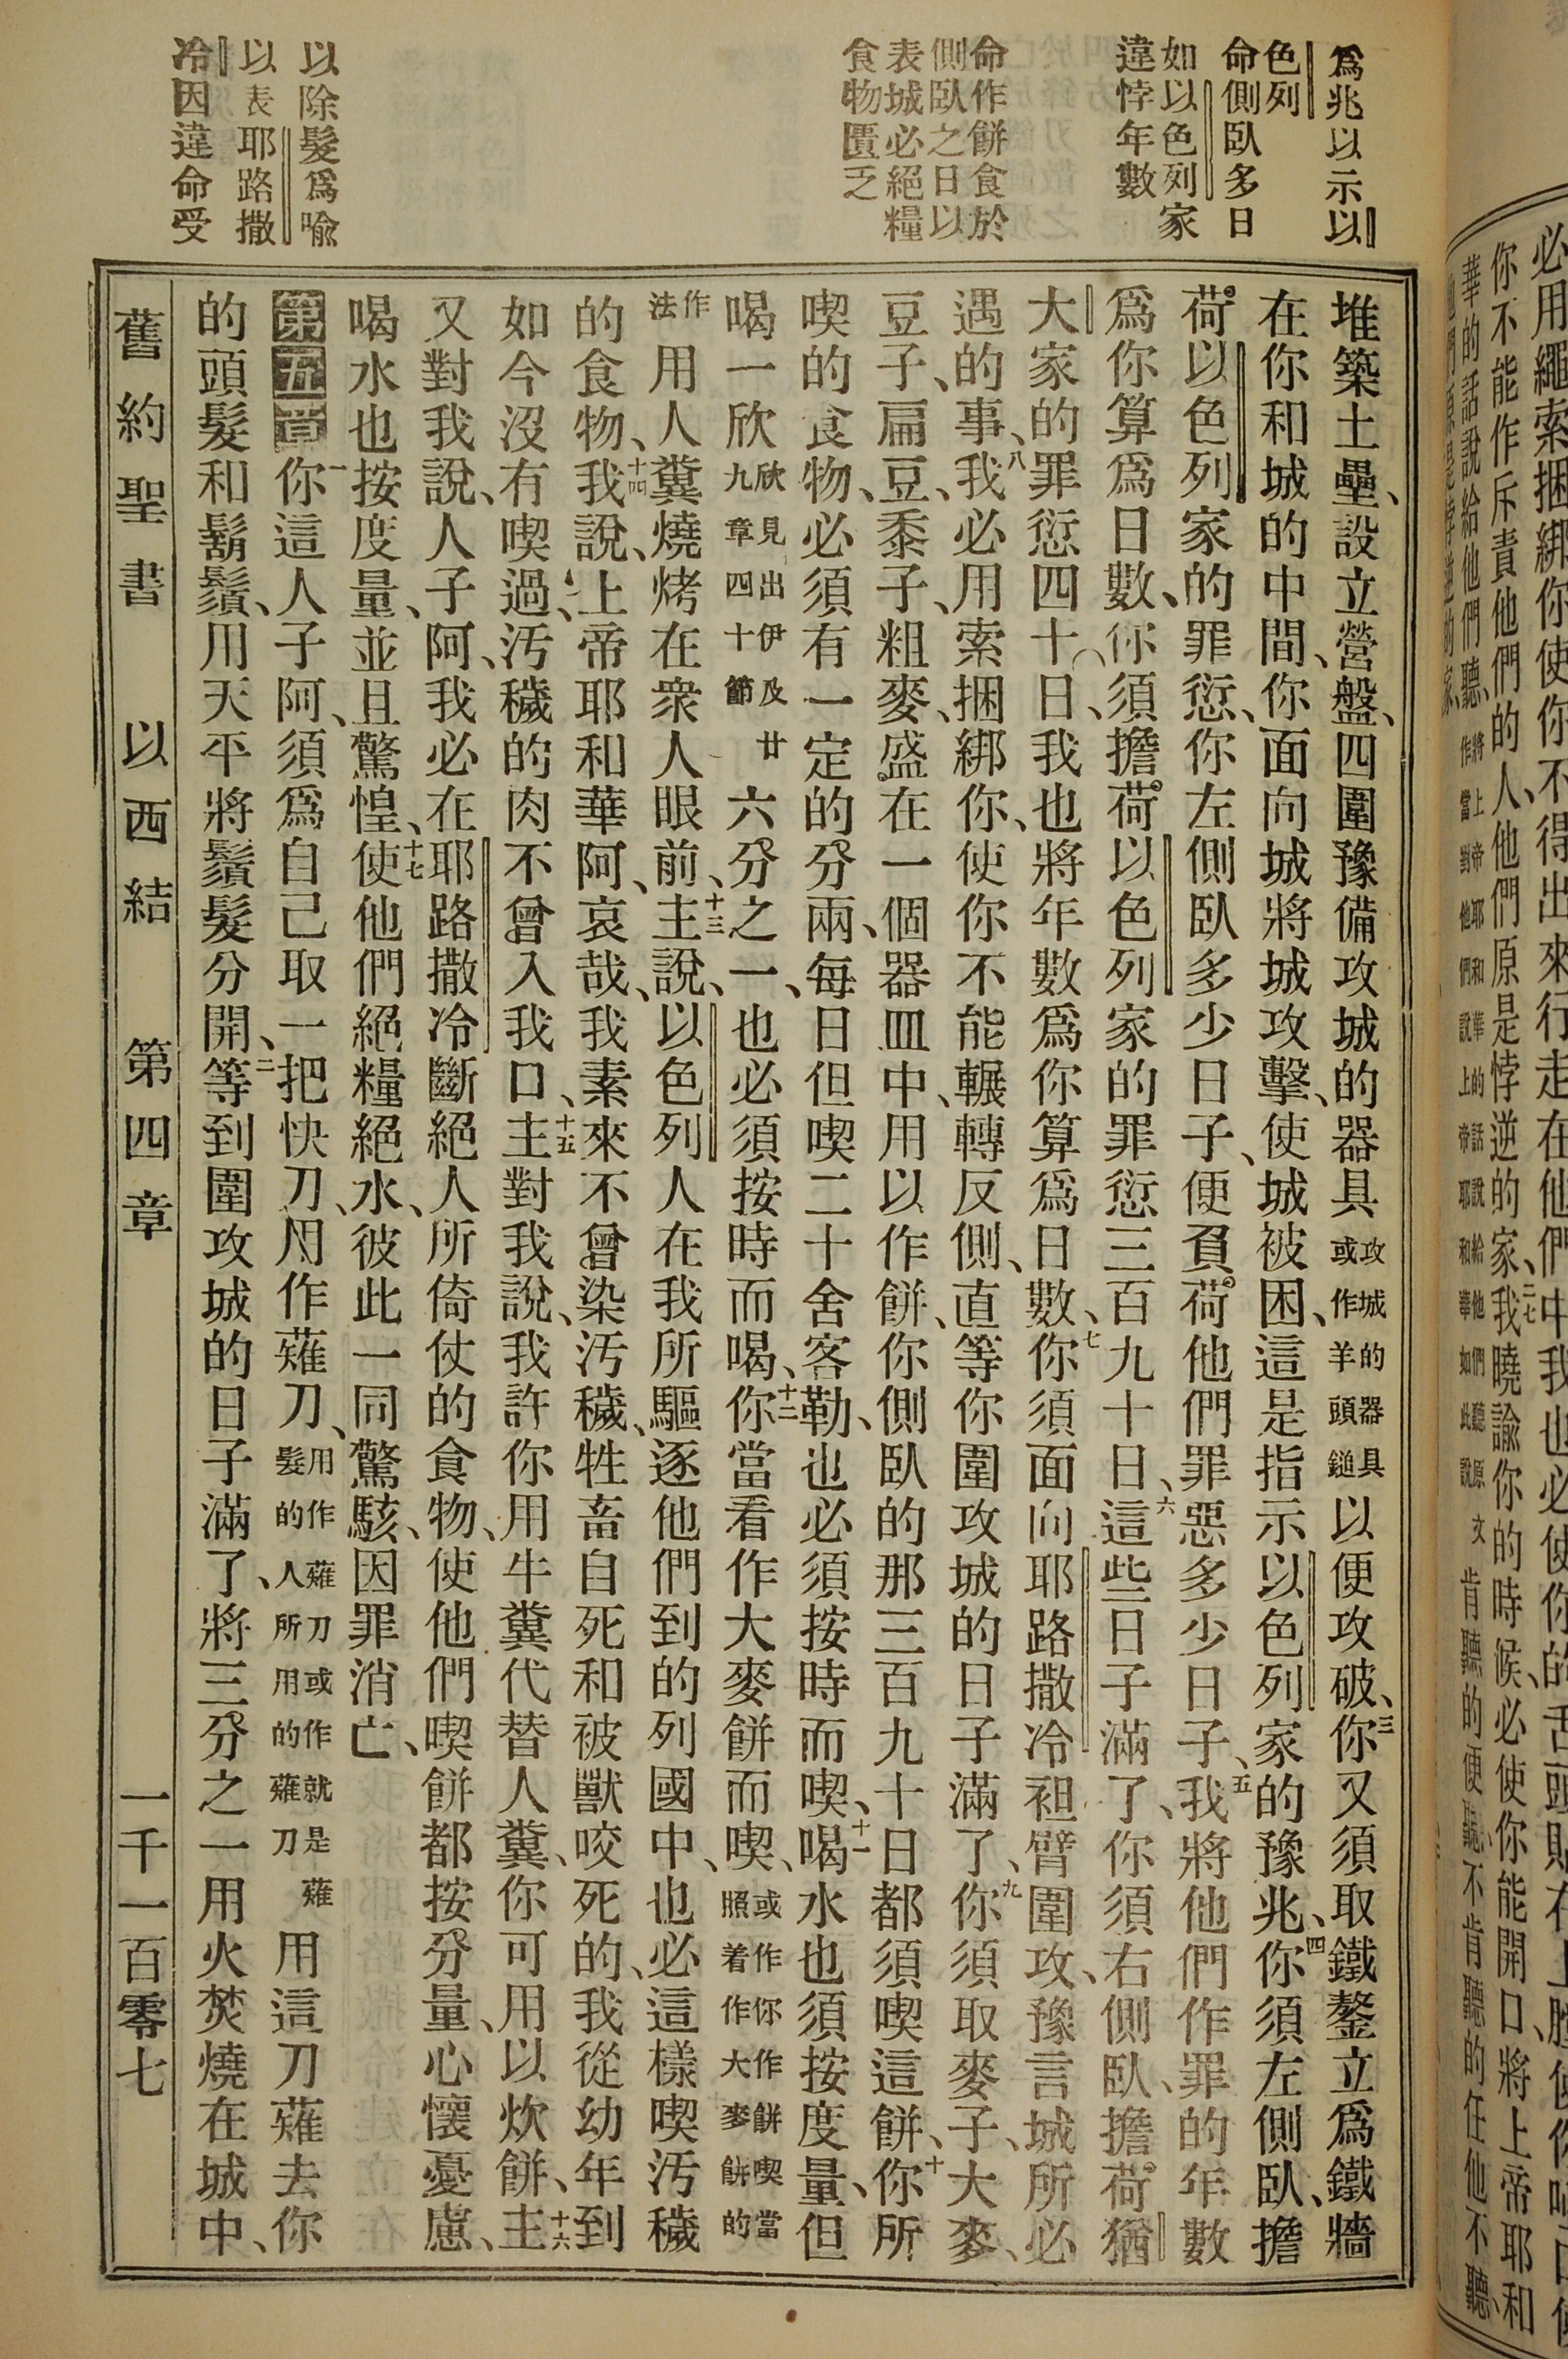 爲兆以示以
色列
命側臥多日
如以色列家
違悖年數
命作餅食於
側臥之日以
表城必絕糧
食物匱乏
以除髮爲喩
以表耶路撒
冷因違命受
堆築土壘、設立營盤、四圍豫備攻城的器具攻城的器具或作羊頭鎚以便攻破、三你又須取鐵鏊立爲鐵牆
在你和城的中間、你面向城將城攻擊、使城被困、這是指示以色列家的豫兆、四你須左側臥、擔
荷以色列家的罪愆、你左側臥多少日子、便負荷他們罪惡多少日子、五我將他們作罪的年數
爲你算爲日數、你須擔荷以色列家的罪愆三百九十日、六這些日子滿了、你須右側臥、擔荷猶
大家的罪愆四十日、我也將年數爲你算爲日數、七你須面向耶路撒冷袒臂圍攻、豫言城所必
遇的事、八我必用索捆綁你、使你不能輾轉反側、直等你圍攻城的日子滿了、九你須取麥子、大麥、
豆子、扁豆、黍子、粗麥、盛在一個器皿中、用以作餅、你側臥的那三百九十日都須喫這餅、十你所
喫的食物、必須有一定的分兩、每日但喫二十舍客勒、也必須按時而喫、十一喝水也須按度量、但
喝一欣欣見出伊及廿九章四十節六分之一、也必須按時而喝、十二你當看作大麥餅而喫、或作你作餅喫當照着作大麥餅的
作法用人糞燒烤在衆人眼前、十三主說、以色列人在我所驅逐他們到的列國中、也必這樣喫汚穢
的食物、十四我說、上帝耶和華阿、哀哉、我素來不曾染汚穢、牲畜自死和被獸咬死的、我從幼年到
如今沒有喫過、汚穢的肉不曾入我口、十五主對我說、我許你用牛糞代替人糞、你可用以炊餅、十六主
又對我說、人子阿、我必在耶路撒冷斷絕人所倚仗的食物、使他們喫餅都按分量、心懷憂慮、
喝水也按度量、並且驚惶、十七使他們絕糧絕水、彼此一同驚駭、因罪消亡、
第五章一你這人子阿、須爲自己取一把快刀、用作薙刀、用作薙刀或作就是薙髮的人所用的薙刀用這刀薙去你
的頭髮和鬍鬚、用天平將鬚髮分開、二等到圍攻城的日子滿了、將三分之一用火焚燒在城中、
舊約聖書　以西結　第四章　一千一百零七